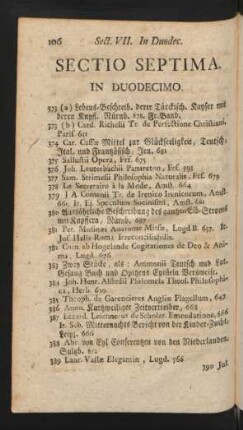 106 Sect. VII. In Duodec.
SECTIO SEPTIMA.
IN DUODECIMO.
373 (a) Lebens-Beschreib. derer Türckisch. Kayser mit
derer Kupf. Nürnb. Fr. Band.
373 (b) Card. Richelii Tr. de Perfectione Christiani,
Paris.
374 Car. Mittel zur Glückseeligkeit, Teutsch-
Ital. und Französisch. Jen.
375 Sallustii Opera, Fef. 675
376 Joh. Lauterbachii Panareton, Fef. 595
377 Sam. Strimesii Philosophia Naturalis, Fef. 679
378 Le Secretaire à la Mode, Amst. 664
379 J. A Comenii Tr. de Irenico Irenicorum, Amst.
661. It. Ej. Speculum Socinismi, Amst. 661
380 Ausführliche Beschreibung des gantzen Elb-Stroms
mit Kupfern, Nürnb. 687
381 Pet. Molinæi Anatome Missæ, Lugd B. 637. It.
Jos. Halls Roma Irreconciliabilis.
382 Corn. ab Hogelande Cogitationes de Deo & Ani-
ma, Lugd. 676
383 Zwey Stücke, als: Ammonii Teutsch und Lat.
Gesang Buch und Opitzens Epistein Versweise.
384 Joh. Henr. Alstedii Philomela Theol. Philosophi-
ca, Herb. 620
385 Theoph. de Garencieres Angliæ Flagellum, 647
386 Anon. Kurtzweiliger Zeitvertreiber, 668
387 Eccard. Leichneri de Scholar. Emendatione, 666
It. Seb. Mitternachts Bericht von der Kinder-Zucht,
Leipz. 666
388 Abr. von Conferentzen von den Niederlanden,
Sultzb.
389 Laur. Vallæ Elegantiæ, Lugd. 566
390 Jul.